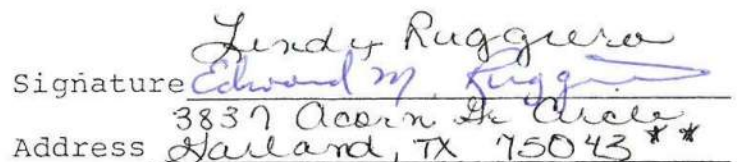 Lindy Ruggiero
Signature Edward M.
3837 Acorn Circle
Address Garland, TX 75043 **